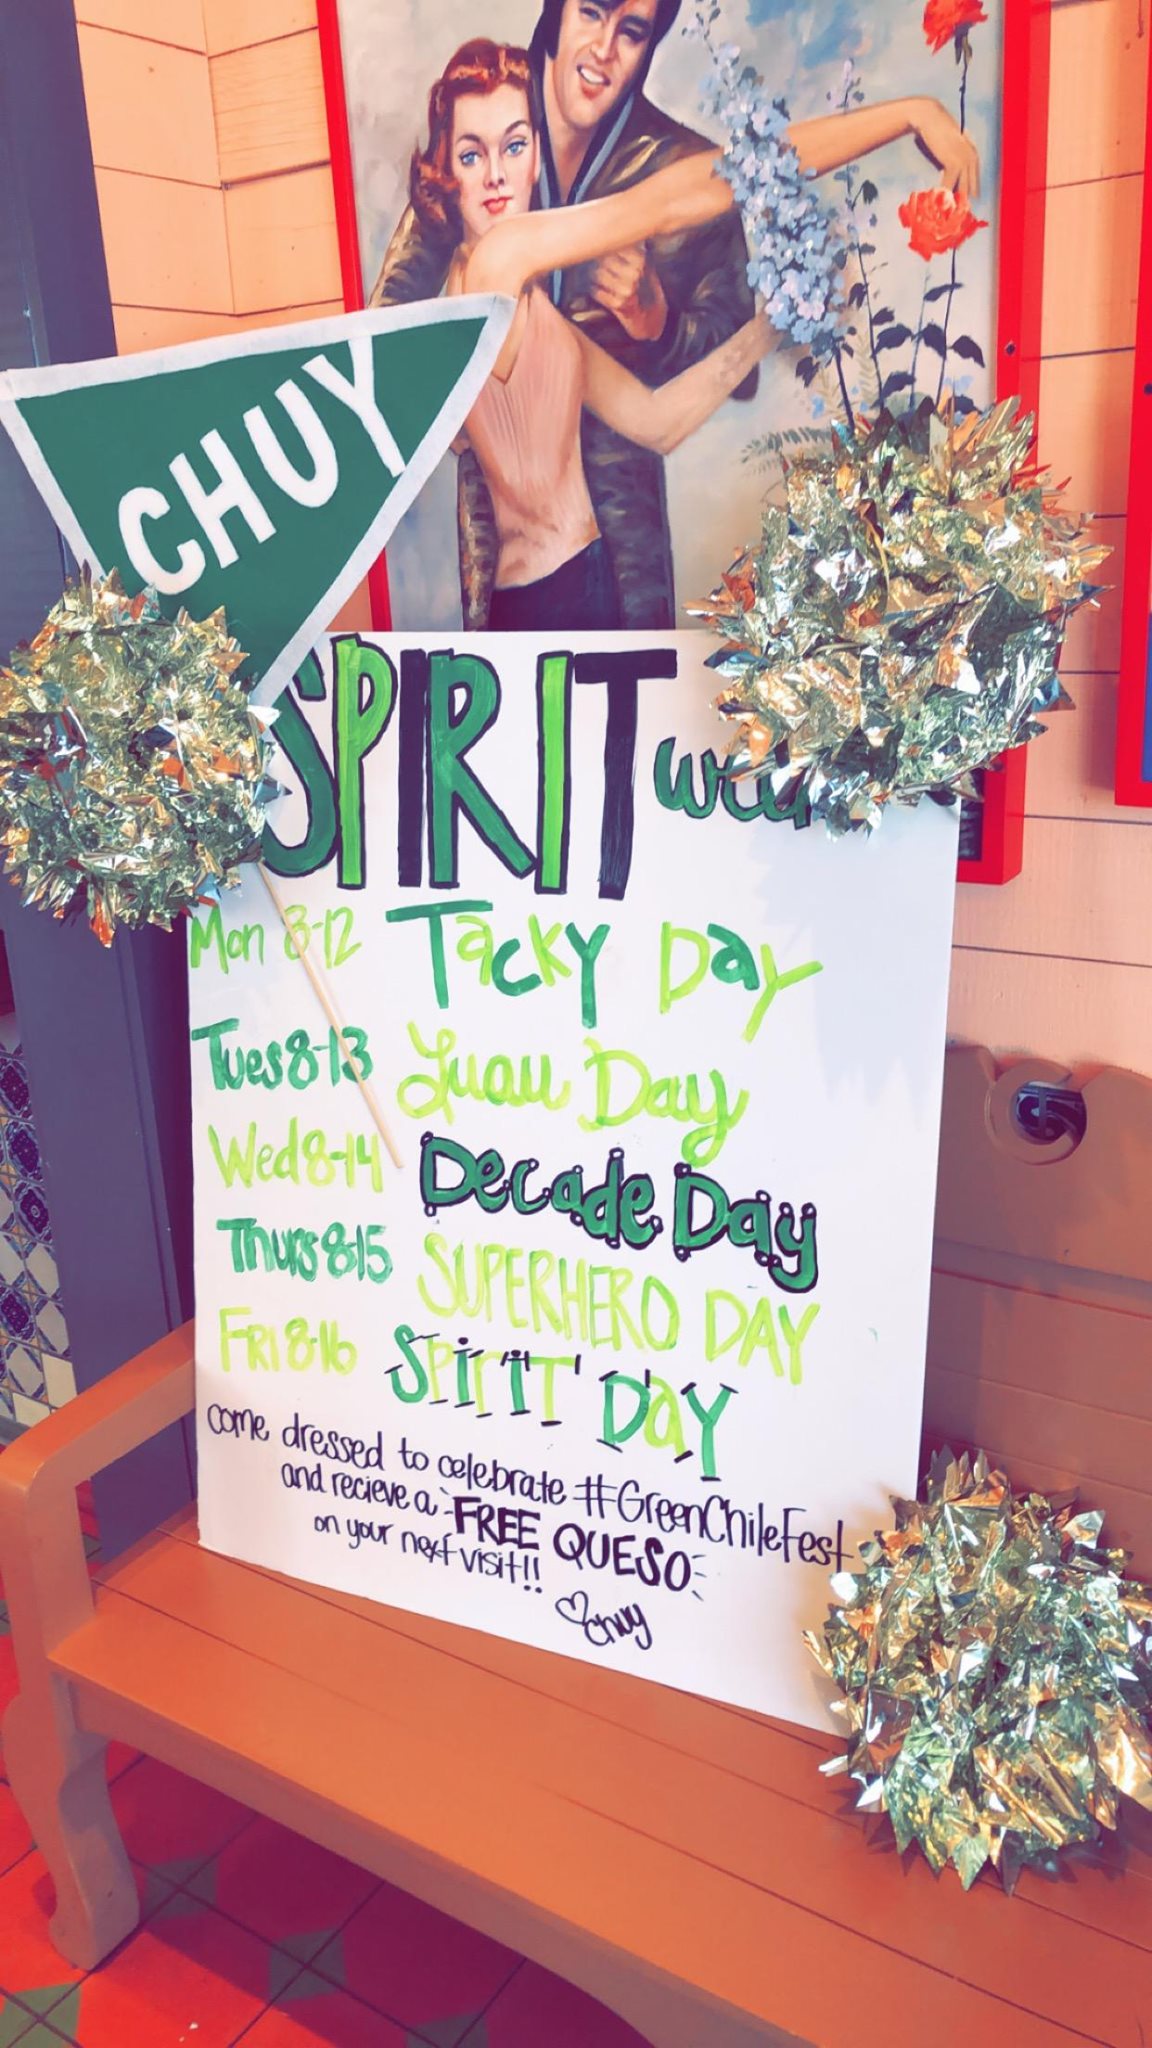 CHUY
SPIRIT
Mon 8-12 Tacky Day
Tues 8-13 Luau Day
Wed 8-14 Decade Day
Thurs 8-15 SUPERHERO DAY
FRI 8-16 SPIRIT DAY
come dressed to celebrate #GreenChileFest
and recieve a FREE QUESO
on your next visit!!
♡ chuy